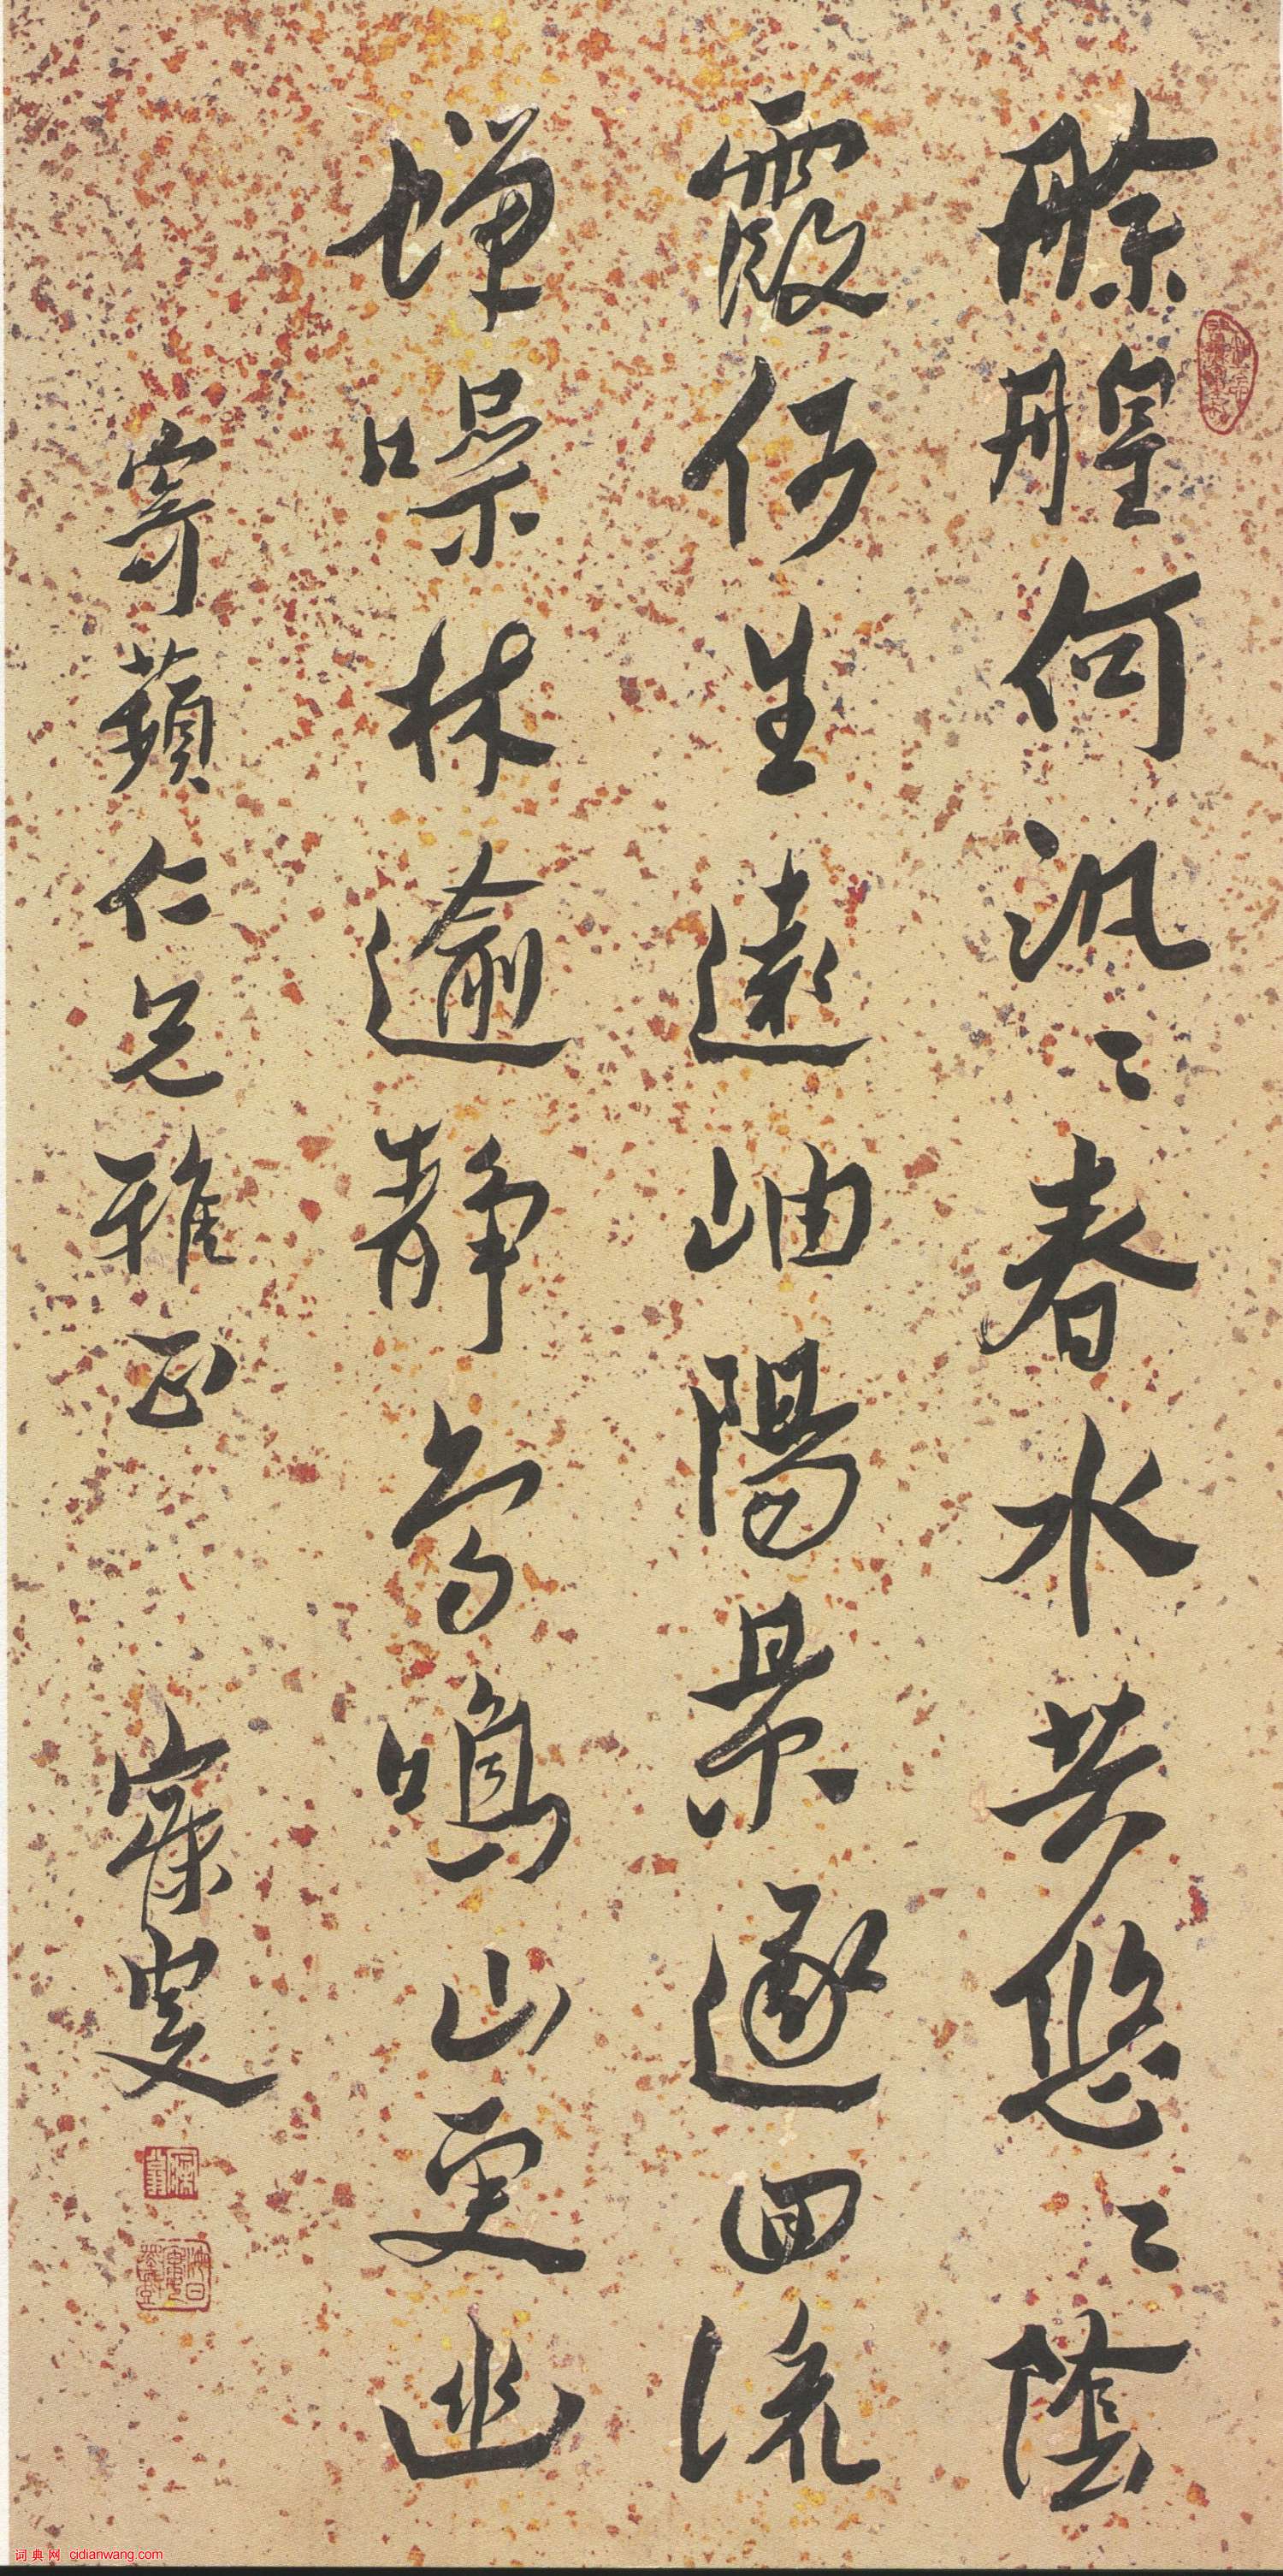 艅艎何汎〻春水共悠〻陰
霞何生遠岫陽景逐回流
蟬噪林逾靜鳥鳴山更幽
寄蘋仁兄雅正 寐叟
词典网 cidianwang.com